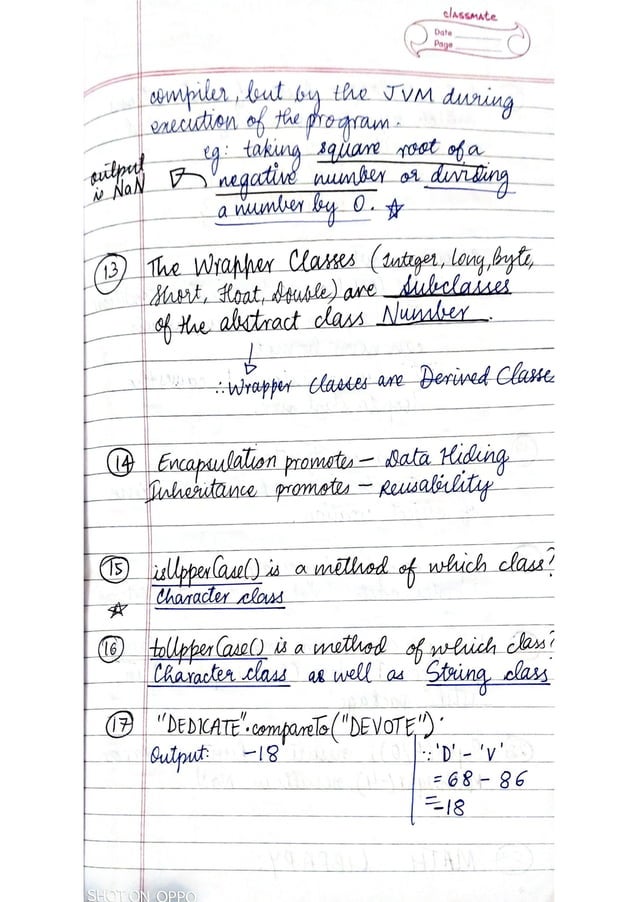 classmate
Date
Page
compiler, but by the JVM during
execution of the program.
eg: taking square root of a
output is NaN
negative number or dividing
a number by 0. ☆
(13) The Wrapper Classes (Integer, Long, Byte,
Short, Float, Double) are Subclasses
of the abstract class Number.
∴ Wrapper Classes are Derived Classe
(14) Encapsulation promotes – Data Hiding
Inheritance promotes – Reusability
(15) isUpperCase() is a method of which class?
☆ Character class
(16) toUpperCase() is a method of which class?
Character class as well as String class
(17) "DEDICATE".compareTo("DEVOTE").
Output: -18 ∵ 'D' - 'V'
= 68 - 86
= -18
SHOT ON OPPO